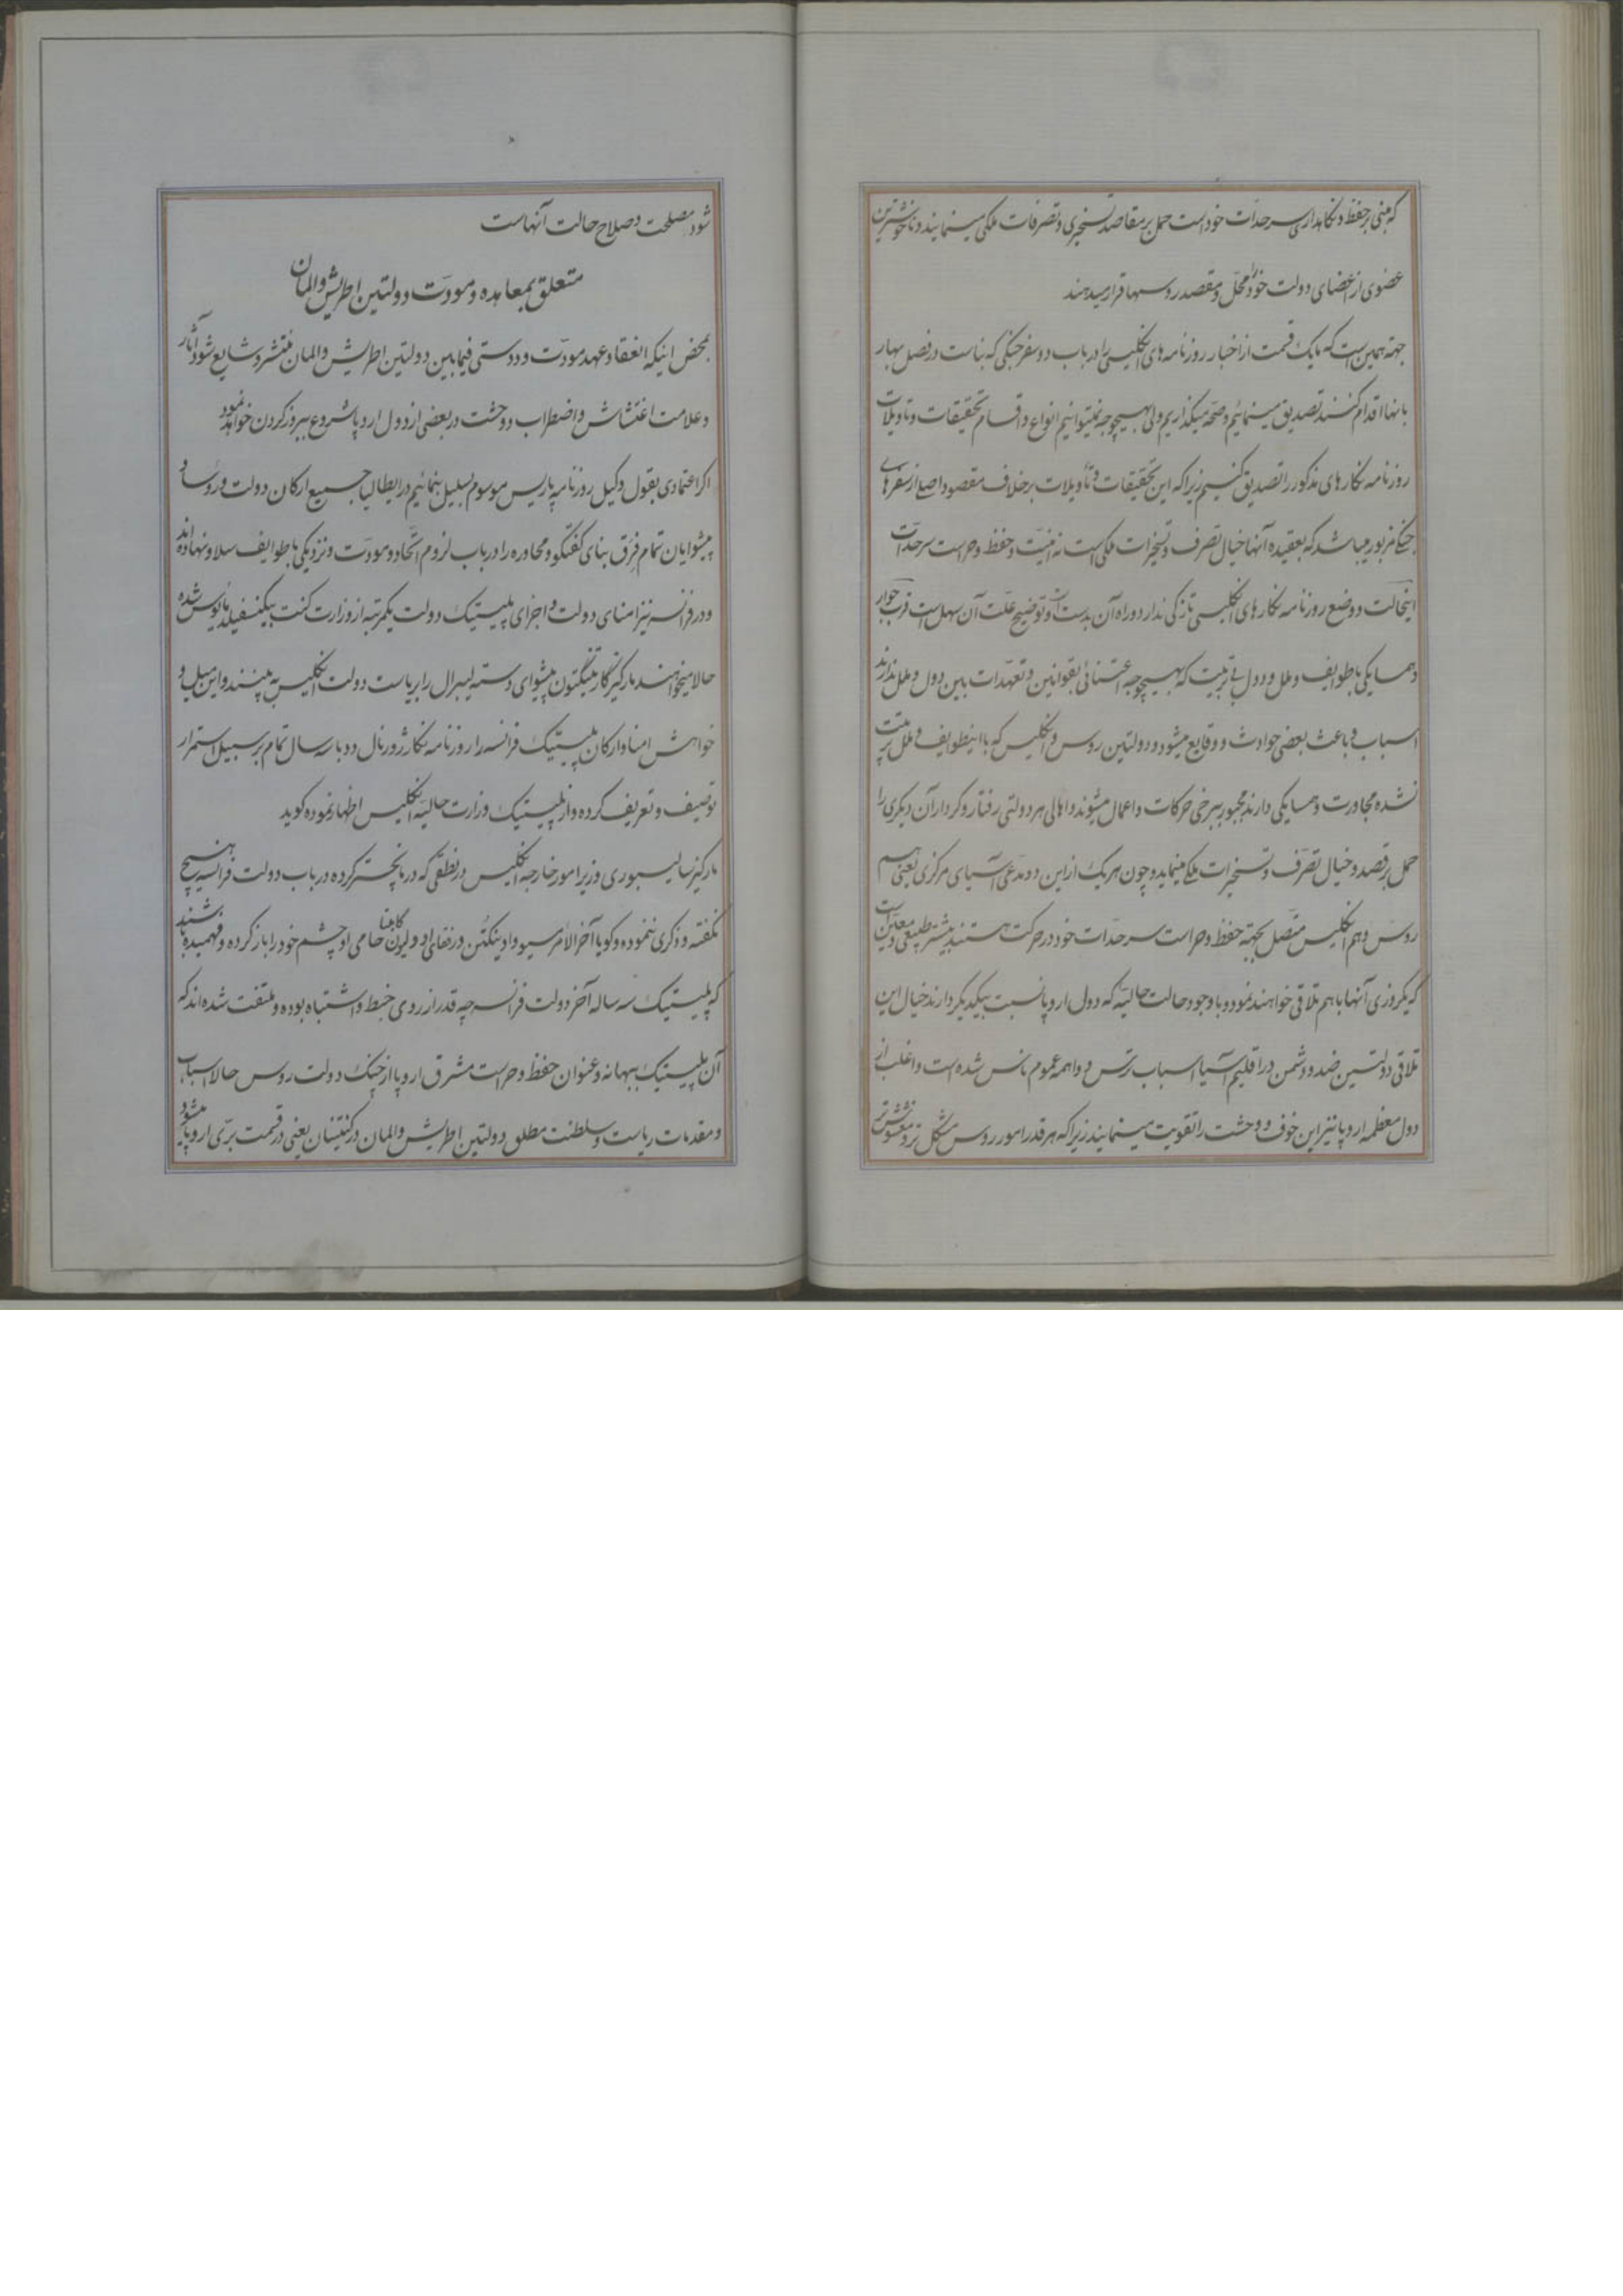 که مبنی بر حفظ و نگاهداری سرحدّات خود است حمل بر مقاصد تسخیری و تصرفات ملکی مینمایند و ناخوشترین
عضوی از اعضای دولت خود را محل و مقصد روسها قرار میدهند
جهة همین است که ما یک قسمت از اخبار روزنامه های انگلیسی را در باب دو سفر جنگی که بناست در فصل بهار
بآنها اقدام کنند تصدیق مینمائیم و صحّه میگذاریم ولی بهیچوجه نمیتوانیم انواع و اقسام تحقیقات و تاویلات
روزنامه نگارهای مذکور را تصدیق کنیم زیرا که این تحقیقات و تأویلات بر خلاف مقصود اصلی از سفرهای
جنگی مزبور میباشد که بعقیده آنها خیال تصرف و تسخیرات ملکی است نه امنیّت و حفظ و حراست سرحدّات
اینحالت و وضع روزنامه نگارهای انگلیسی تازگی ندارد و راه آن بدست و توضیح علّت آن سهل است قرب جوار
و همسایگی با طوایف و ملل و دول بی تربیت که بهیچوجه اعتنائی بقوانین و تعهّدات بین دول و ملل ندارند
اسباب و باعث بعضی حوادث و وقایع میشود و دولتین روس و انگلیس که با اینطوایف و ملل تربیت
نشده مجاورت و همسایگی دارند مجبور ببرخی حرکات و اعمال میشوند و اهالی هر دولتی رفتار و کردار آن دیگری را
حمل بر قصد و خیال تصرّف و تسخیرات ملکی مینماید و چون هر یک از این دو مدّعی آسیای مرکزی یعنی هم
روس و هم انگلیس متصل بجهة حفظ و حراست سرحدّات خود در حرکت هستند بیشتر طبیعی و معیّن است
که یکروزی آنها با هم تلاقی خواهند نمود و با وجود حالت حالیّه که دول اروپا نسبت بیکدیگر دارند خیال این
تلاقی دولتین ضد و دشمن در اقلیم آسیا اسباب ترس و واهمه عموم ناس شده است و اغلب از
دول معظمه اروپا نیز این خوف و وحشت را تقویت مینمایند زیرا که هر قدر امور روس مشکل تر و مغشوش تر
شود مصلحت و صلاح حالت آنهاست
متعلق بمعاهده و مودّت دولتین اطریش و المان
بمحض اینکه انعقاد عهد مودّت و دوستی فیمابین دولتین اطریش و المان منتشر و شایع شود آثار
و علامت اغتشاش و اضطراب و وحشت در بعضی از دول اروپا شروع ببروز کردن خواهد نمود
اگر اعتمادی بقول وکیل روزنامه پاریس موسوم بسیل بنمائیم در ایطالیا جمیع ارکان دولت و رؤسا و
پیشوایان تمام فرق بنای گفتگو و محاوره را در باب لزوم اتّحاد و مودّت و نزدیکی با طوایف سلاو نهاده اند
و در فرانسه نیز امنای دولت و اجزای پلیتیک دولت یکمرتبه از وزارت کنت بیکنسفیلد مأیوس شده
حالا میخواهند مارکیز هارتنگتون پیشوای دسته لیبرال را بریاست دولت انگلیس به بینند و این میل و
خواهش امنا و ارکان پلیتیک فرانسه را روزنامه نگار ژورنال دو با سه سال تمام بر سبیل استمرار
توصیف و تعریف کرده و از پلیتیک وزارت حالیّه انگلیس اظهار نموده گوید
مارکیز سالیسبوری وزیر امور خارجه انگلیس در نطقی که در مانچستر کرده در باب دولت فرانسه هیچ
نگفته و ذکری ننموده و گویا آخرالامر مسیو وادینگتن و رفقای او و لیون گامبتا حامی او چشم خود را باز کرده و فهمیده باشند
که پلیتیک سه ساله آخر دولت فرانسه چه قدر از روی خبط و اشتباه بوده و ملتفت شده اند که
آن پلیتیک ببهانه و عنوان حفظ و حراست مشرق اروپا از چنگ دولت روس حالا اسباب
و مقدمات ریاست و سلطنت مطلق دولتین اطریش و المان در کنتینان یعنی در قسمت برّی اروپا میشود